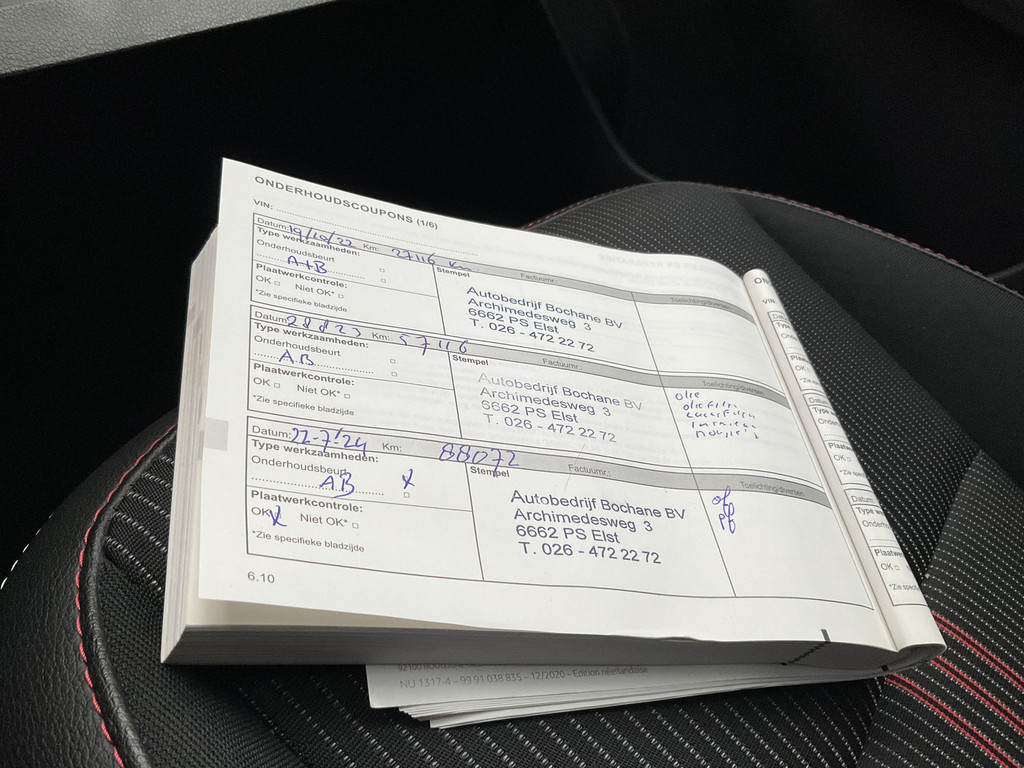 ONDERHOUDSCOUPONS (1/6)
VIN:
Datum: 19/10/22 Km: 27116 Km Factuurnr.:
Type werkzaamheden:
Onderhoudsbeurt
A+B
Plaatwerkcontrole:
OK □ Niet OK* □
*Zie specifieke bladzijde
Stempel
Autobedrijf Bochane BV
Archimedesweg 3
6662 PS Elst
T. 026 - 472 22 72
Toelichting/diversen
Datum: 28 8 23 Km: 57116 Factuurnr.:
Type werkzaamheden:
Onderhoudsbeurt
A.B
Plaatwerkcontrole:
OK □ Niet OK* □
*Zie specifieke bladzijde
Stempel
Autobedrijf Bochane BV
Archimedesweg 3
6662 PS Elst
T. 026 - 472 22 72
Toelichting/diversen
olie
oliefilter
Datum: 22-7-'24 Km: 88072 Factuurnr.:
Type werkzaamheden:
Onderhoudsbeurt
AB X
Plaatwerkcontrole:
OK X Niet OK* □
*Zie specifieke bladzijde
Stempel
Autobedrijf Bochane BV
Archimedesweg 3
6662 PS Elst
T. 026 - 472 22 72
Toelichting/diversen
of
pf
6.10
NU 1317-4 – 99 91 038 835 – 12/2020 – Edition néerlandaise